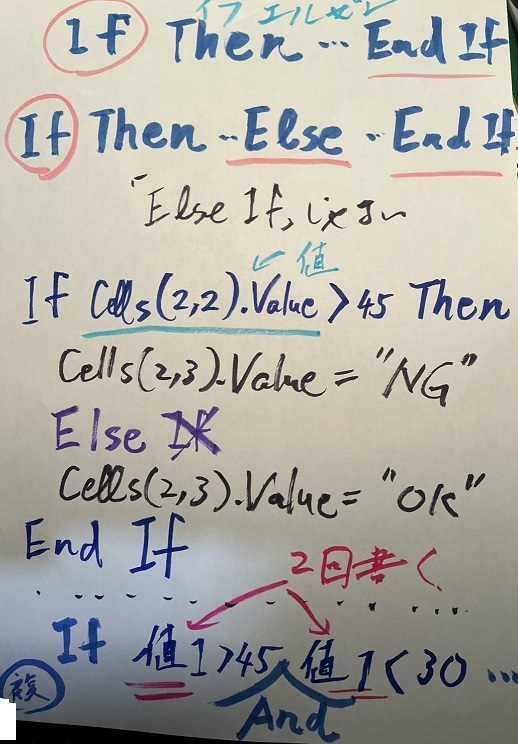 イフ エルゼン
If Then … End If
If Then ‥ Else ‥ End If
「Else If」
値
If Cells(2,2).Value > 45 Then
Cells(2,3).Value = "NG"
Else If
Cells(2,3).Value = "OK"
End If
2回書く
If 値1>45 値1<30 …
And
複